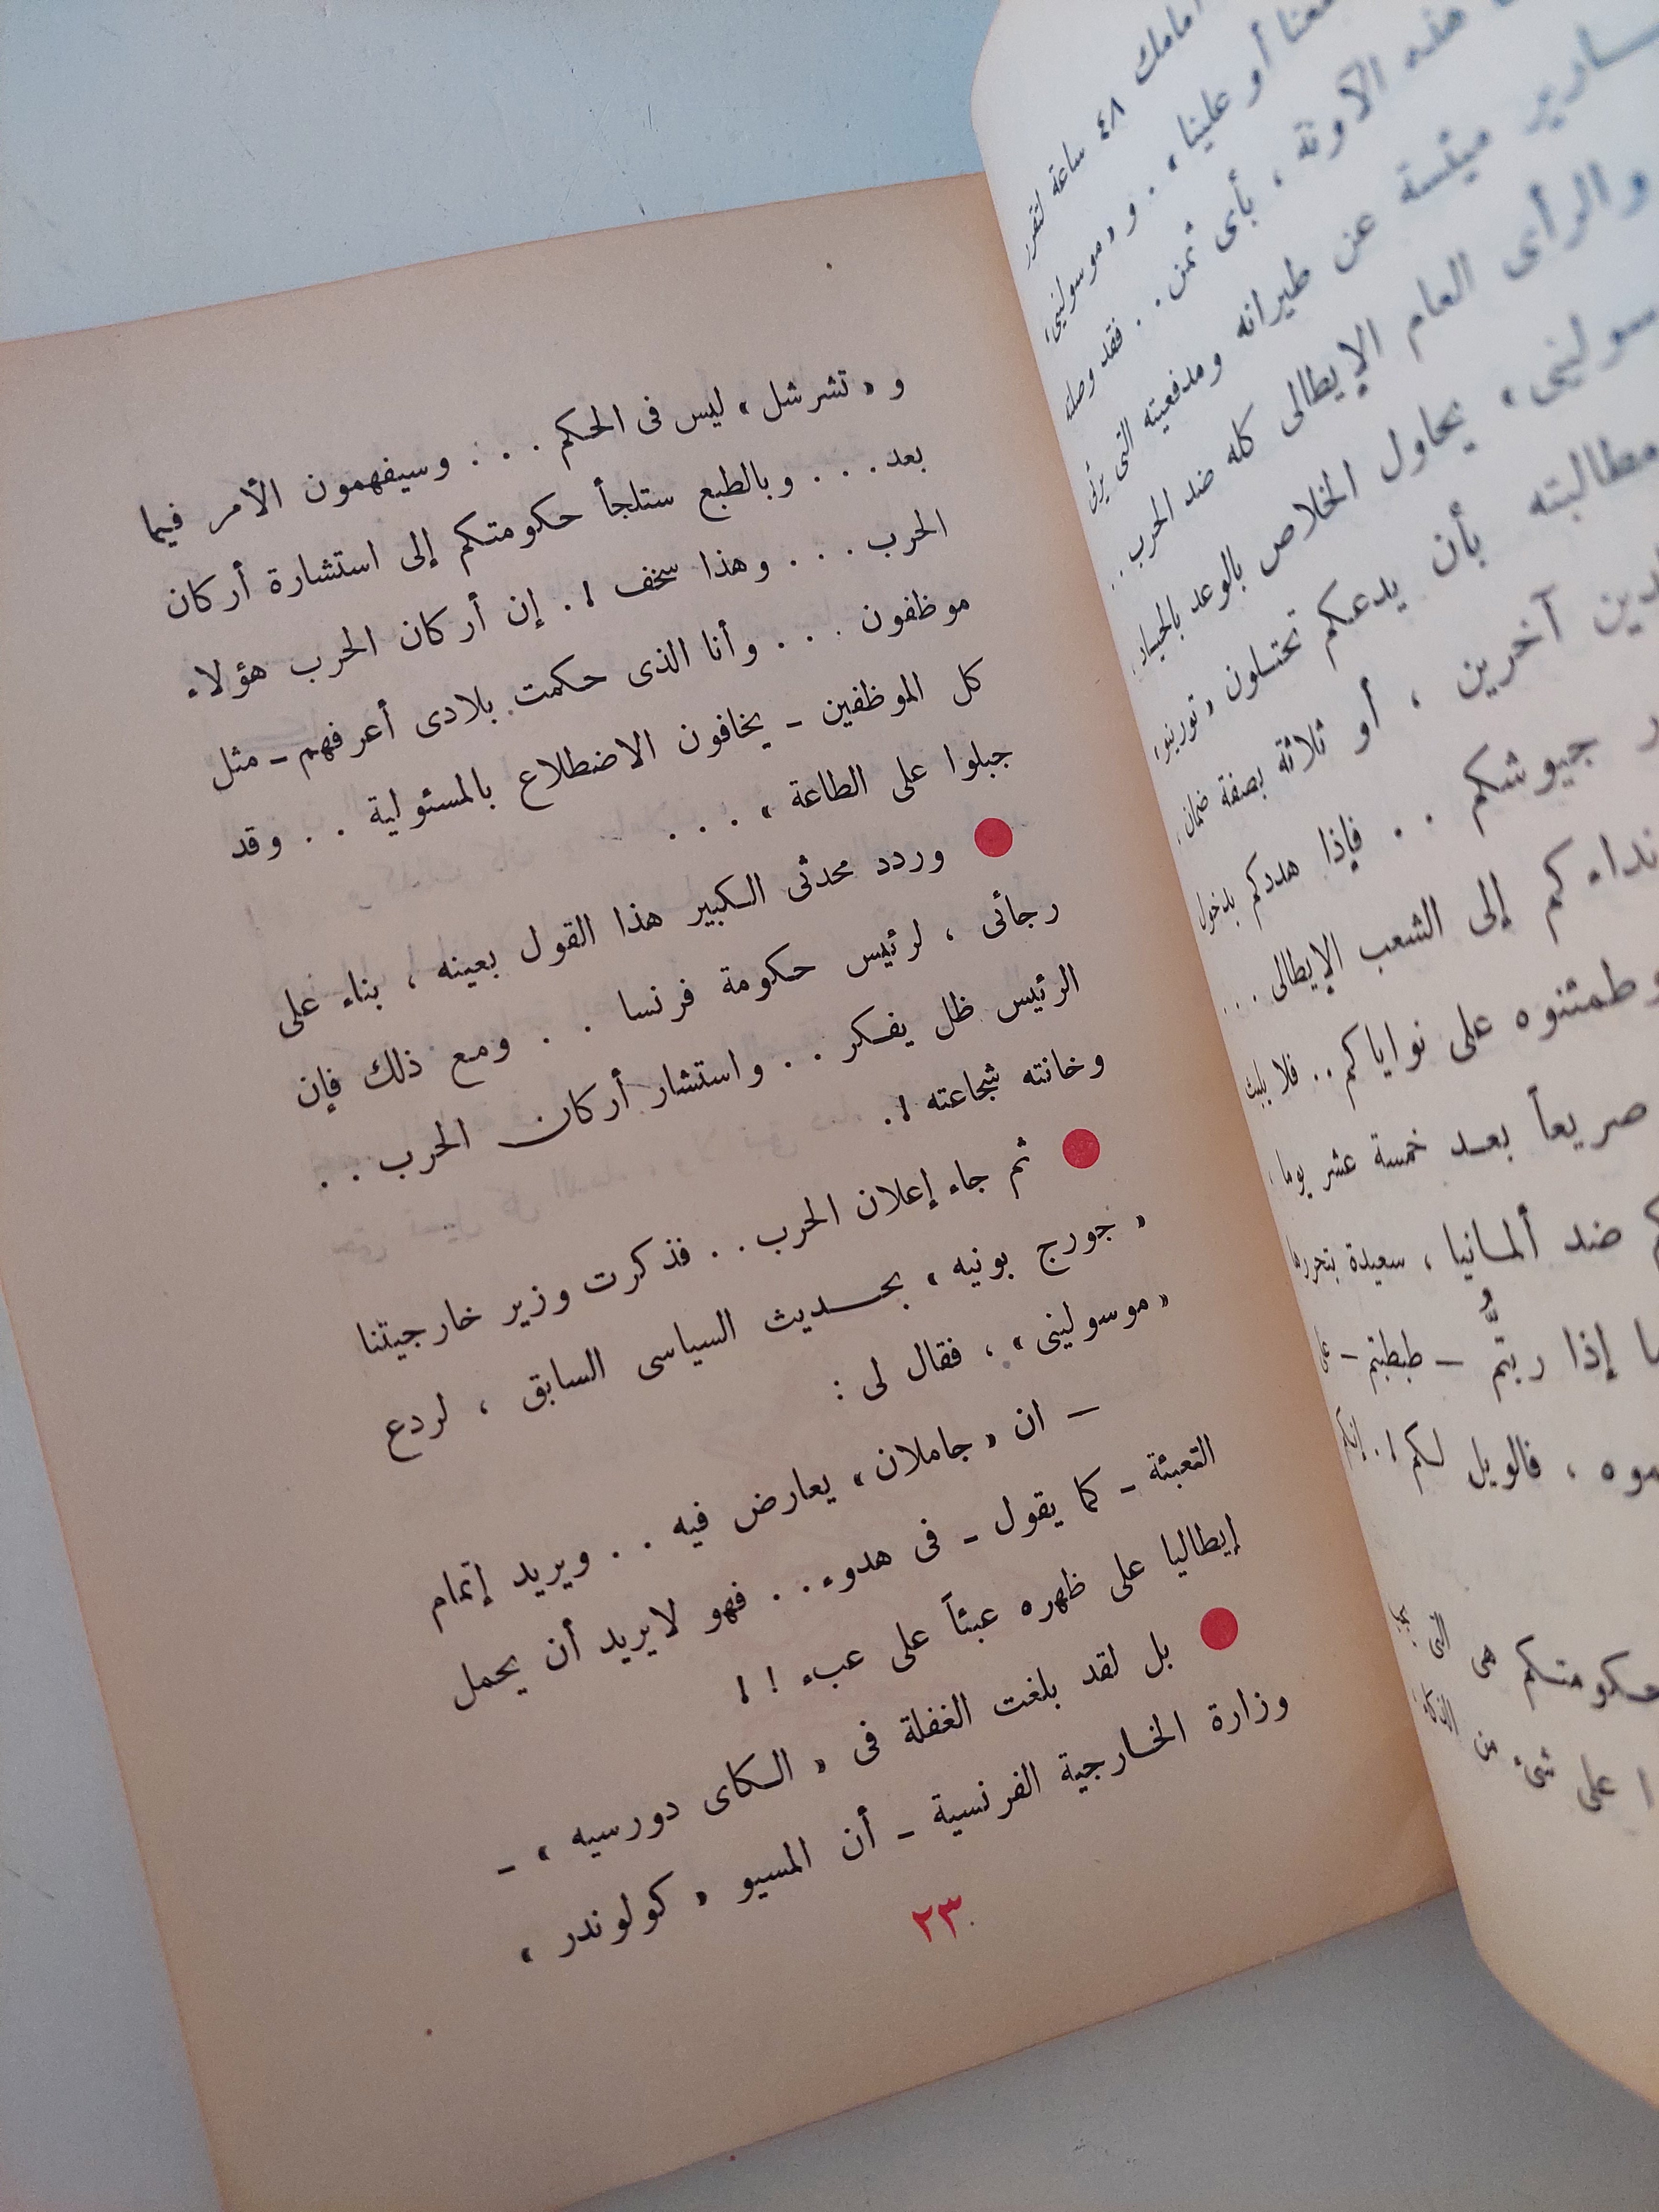 امامك ٤٨ ساعة لتقرر
معنا أو علينا » . . و « موسولينى »
هذه الآونة ، بأى ثمن . . فقد وصلته
ميئسة عن طيرانه ومدفعيته التى يرثى
والرأى العام الإيطالى كله ضد الحرب . .
يحاول الخلاص بالوعد بالحياد ،
مطالبته بأن يدعكم تحتلون « تورينو »
آخرين ، أو ثلاثة بصفة ضمان ،
جيوشكم . . فإذا هددكم بدخول
نداءكم إلى الشعب الإيطالى . . .
وطمئنوه على نواياكم . . فلا يلبث
صريعاً بعد خمسة عشر يوما ،
ضد ألمانيا ، سعيدة بتحررها
إذا ربتُّم – طبطبتم – على
فالويل لكم ! . إنكم
حكومتكم هى التى
على شىء من
و « تشرشل » ليس فى الحكم . . . وسيفهمون الأمر فيما
بعد . . . وبالطبع ستلجأ حكومتكم إلى استشارة أركان
الحرب . . . وهذا سخف ! . إن أركان الحرب هؤلاء
موظفون . . . وأنا الذى حكمت بلادى أعرفهم – مثل
كل الموظفين – يخافون الاضطلاع بالمسئولية . . وقد
جبلوا على الطاعة » . . .
وردد محدثى الكبير هذا القول بعينه ، بناء على
رجائى ، لرئيس حكومة فرنسا . . ومع ذلك فإن
الرئيس ظل يفكر . . واستشار أركان الحرب . .
وخانته شجاعته ! .
ثم جاء إعلان الحرب . . فذكرت وزير خارجيتنا
« جورج بونيه » بحديث السياسى السابق ، لردع
« موسولينى » ، فقال لى :
– ان « جاملان » يعارض فيه . . ويريد إتمام
التعبئة – كما يقول – فى هدوء . . فهو لايريد أن يحمل
إيطاليا على ظهره عبئاً على عبء ! !
بل لقد بلغت الغفلة فى « الكاى دورسيه » –
وزارة الخارجية الفرنسية – أن المسيو « كولوندر »
٢٣